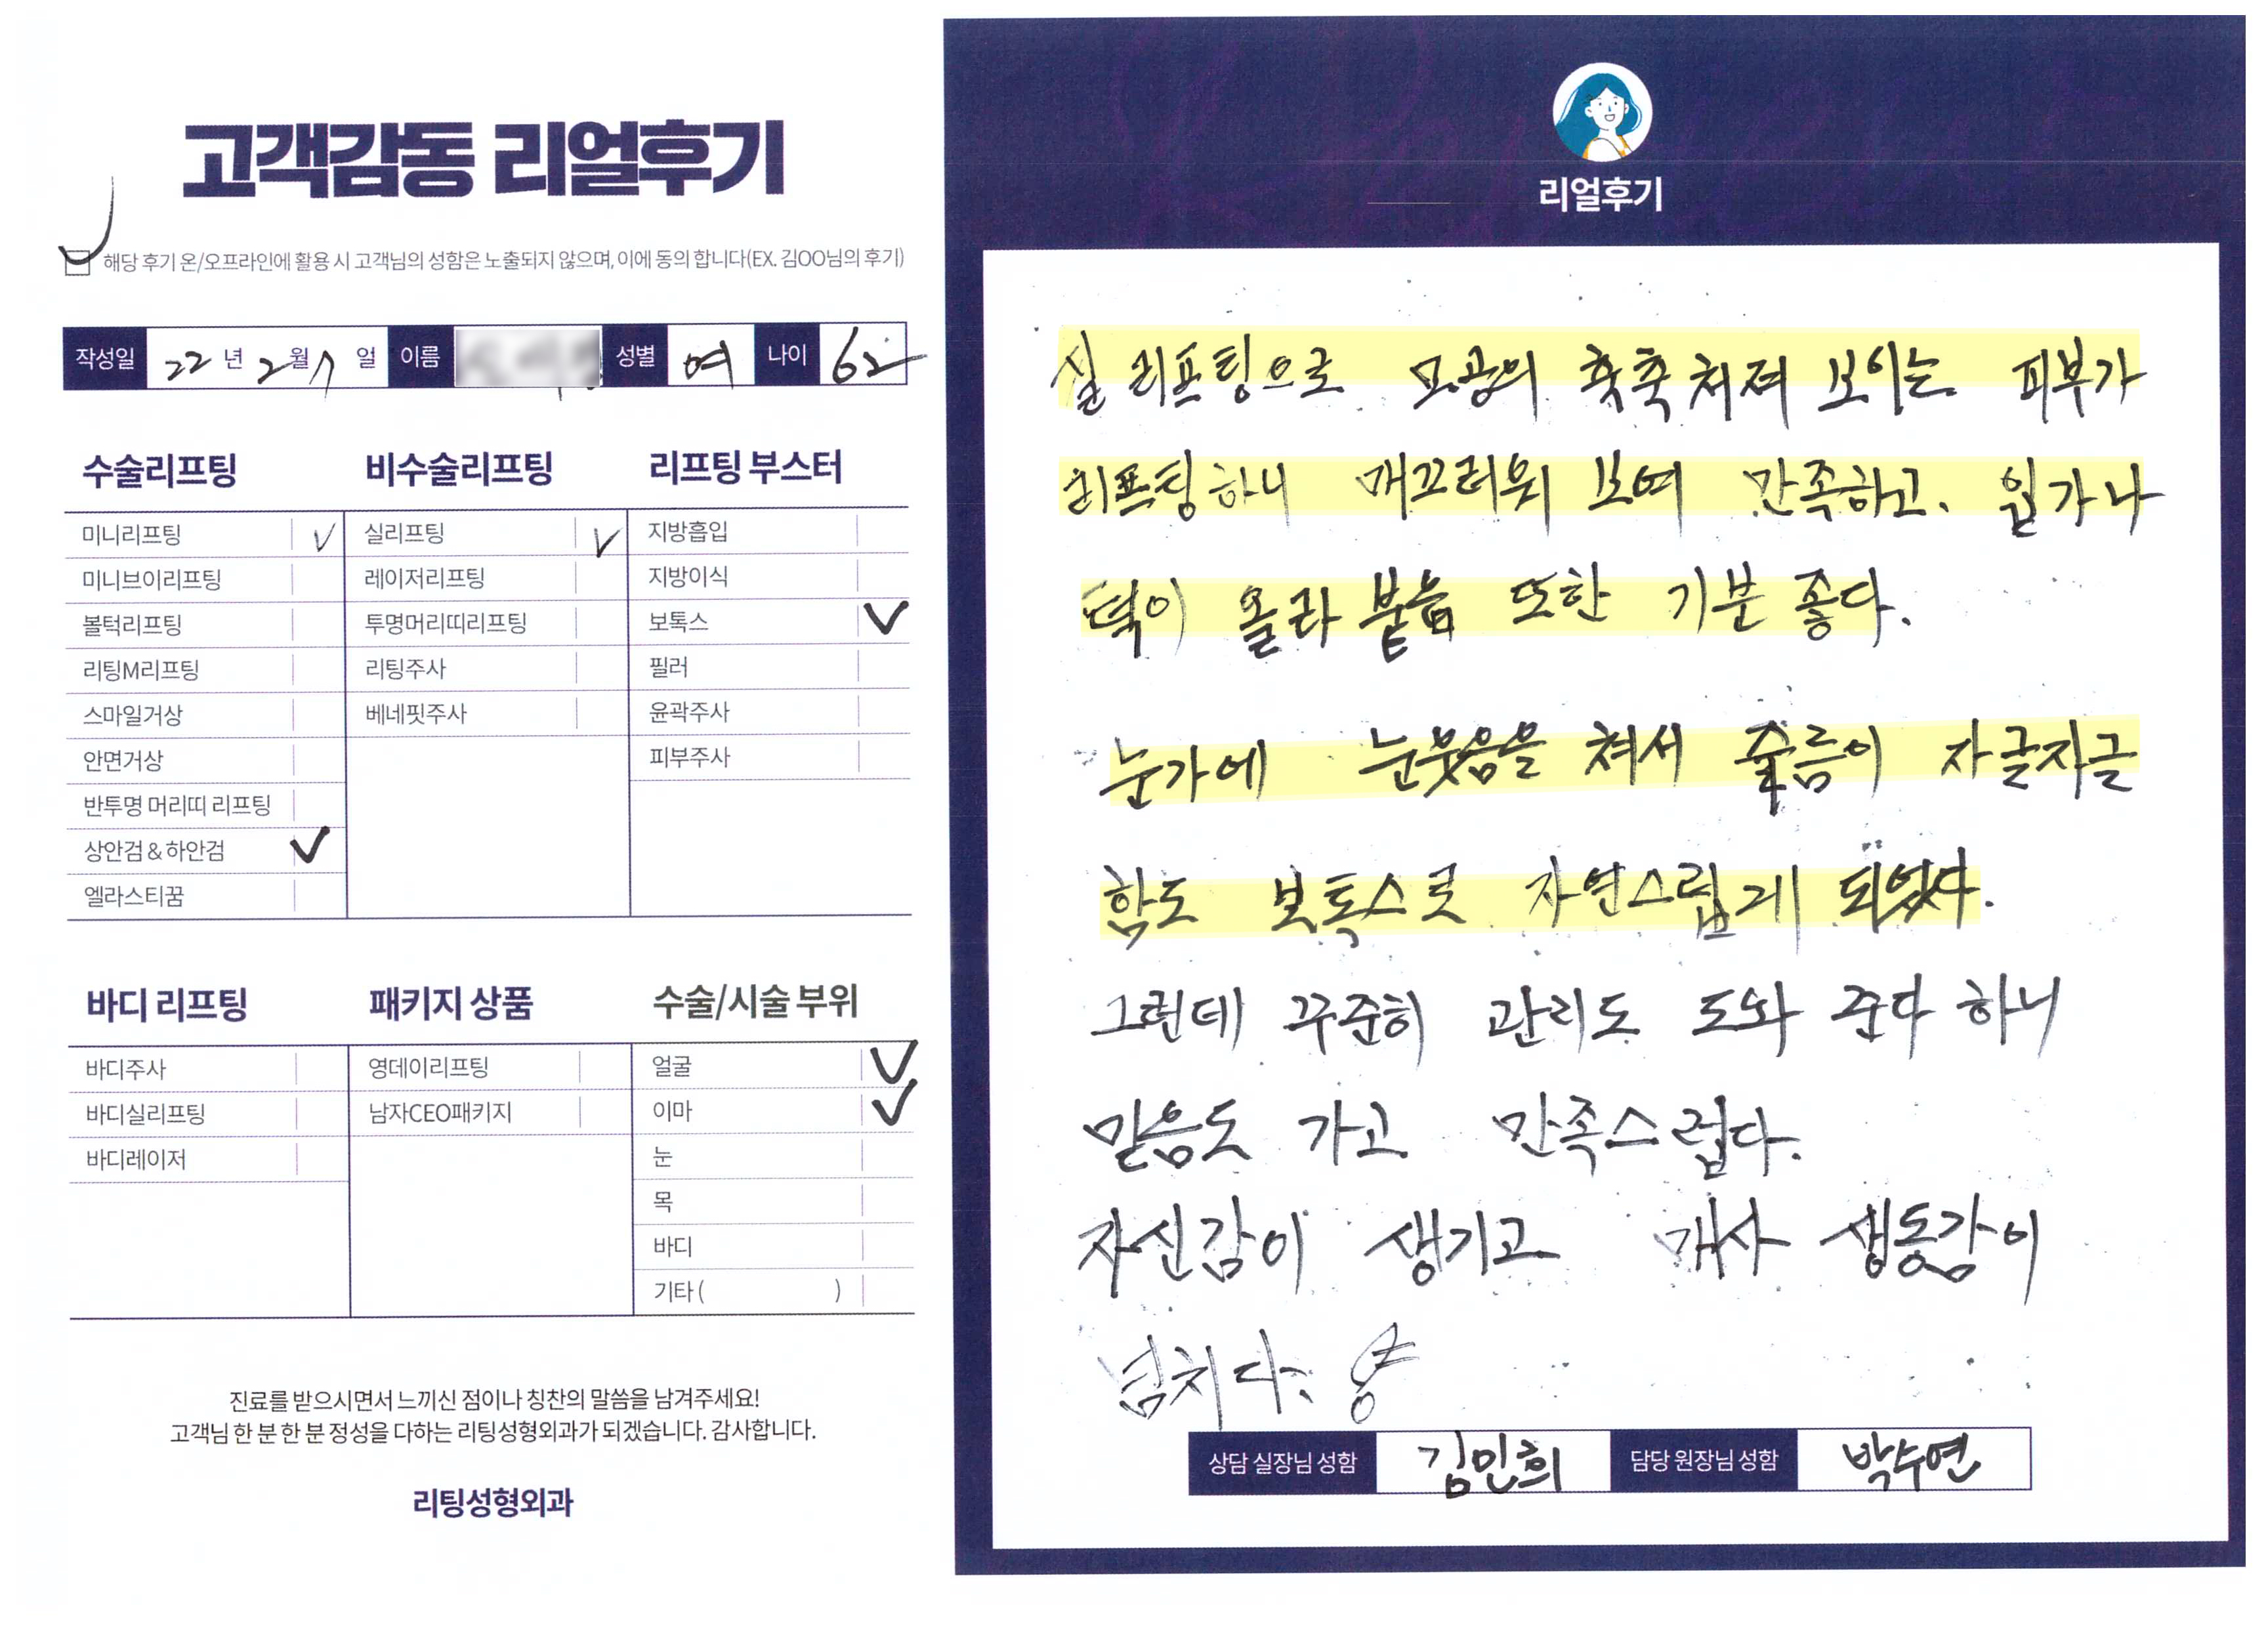 고객감동 리얼후기
해당 후기 온/오프라인에 활용 시 고객님의 성함은 노출되지 않으며, 이에 동의 합니다(EX. 김OO님의 후기)
작성일 22년 2월 7일 이름 성별 여 나이 62
수술리프팅
미니리프팅 V
미니브이리프팅
볼턱리프팅
리팅M리프팅
스마일거상
안면거상
반투명 머리띠 리프팅
상안검 & 하안검 V
엘라스티꿈
비수술리프팅
실리프팅 V
레이저리프팅
투명머리띠리프팅
리팅주사
베네핏주사
리프팅 부스터
지방흡입
지방이식
보톡스 V
필러
윤곽주사
피부주사
바디 리프팅
바디주사
바디실리프팅
바디레이저
패키지 상품
영데이리프팅
남자CEO패키지
수술/시술 부위
얼굴 V
이마 V
눈
목
바디
기타 ( )
진료를 받으시면서 느끼신 점이나 칭찬의 말씀을 남겨주세요!
고객님 한 분 한 분 정성을 다하는 리팅성형외과가 되겠습니다. 감사합니다.
리팅성형외과
리얼후기
실 리프팅으로 모공의 축축 쳐져 보이는 피부가
리프팅하니 매끄러워 보여 만족하고. 입가나
턱이 올라 붙음 또한 기분 좋다.
눈가에 눈웃음을 쳐서 줄름이 자글자글
함도 보톡스로 자연스럽게 되었다.
그런데 꾸준히 관리도 도와 준다 하니
믿음도 가고 만족스럽다.
자신감이 생기고 매사 생동감이
넘치다.
상담 실장님 성함 김민희 담당 원장님 성함 박수연